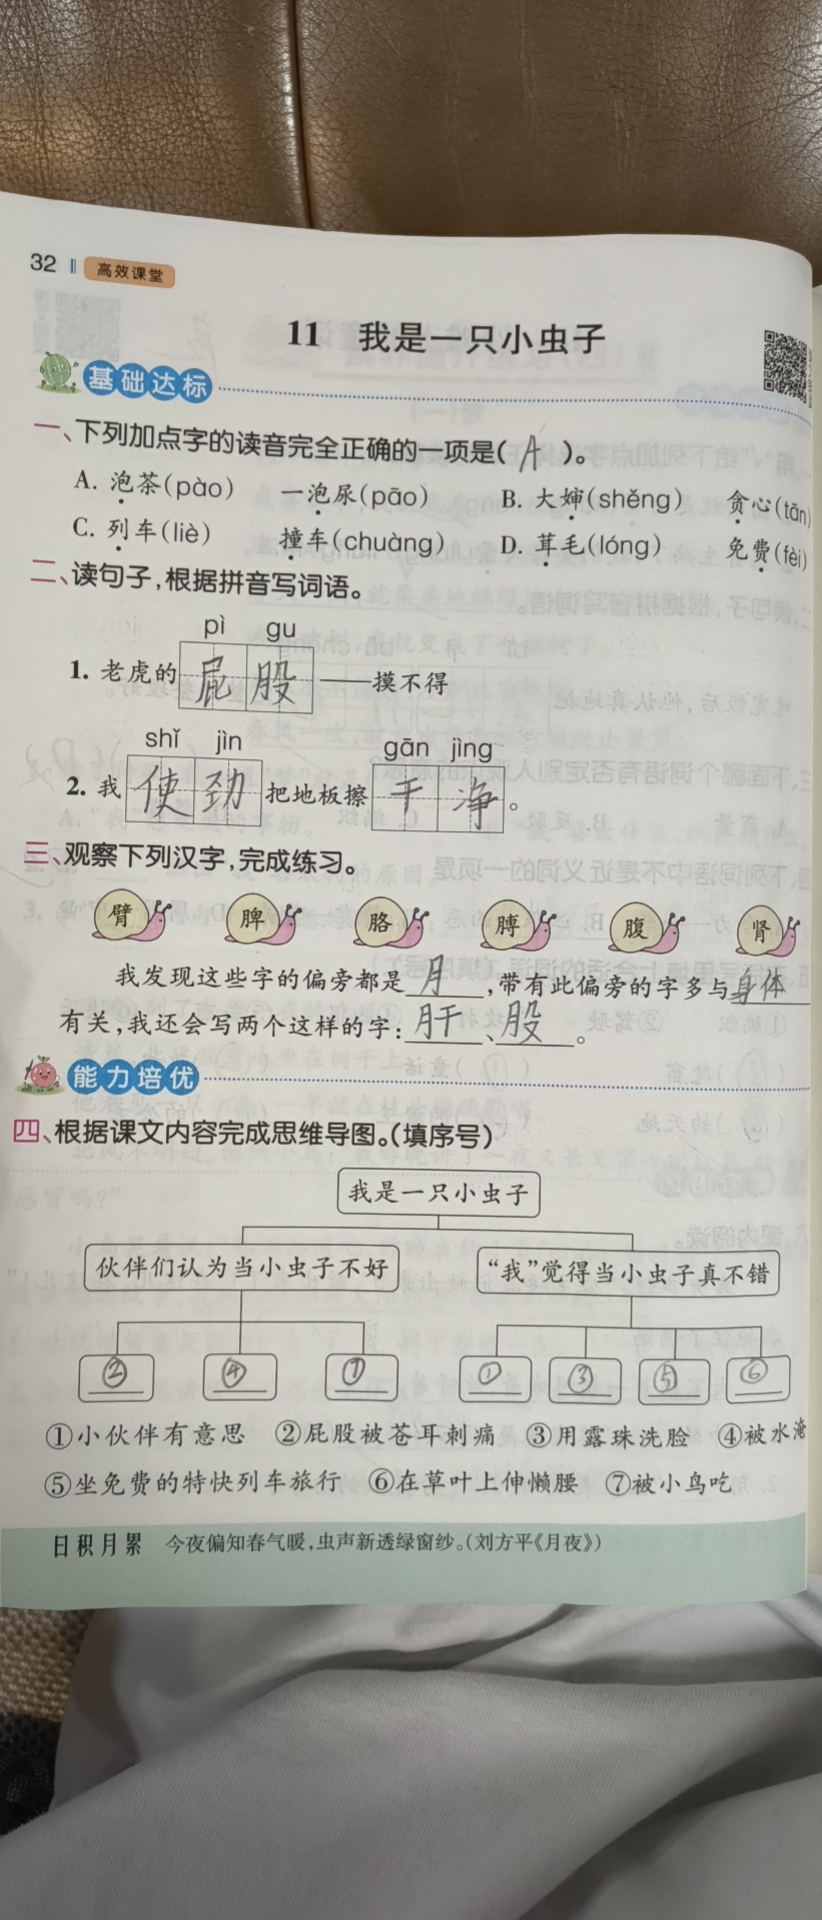 32 高效课堂
11 我是一只小虫子
基础达标
一、下列加点字的读音完全正确的一项是( A )。
A. 泡茶(pào) 一泡尿(pāo) B. 大婶(shěng) 贪心(tān)
C. 列车(liè) 撞车(chuàng) D. 茸毛(lóng) 免费(fèi)
二、读句子,根据拼音写词语。
pì gu
1. 老虎的屁股——摸不得
shǐ jìn gān jìng
2. 我使劲把地板擦干净。
三、观察下列汉字,完成练习。
臂 脾 胳 膊 腹 肾
我发现这些字的偏旁都是月,带有此偏旁的字多与身体
有关,我还会写两个这样的字:肝、股。
能力培优
四、根据课文内容完成思维导图。(填序号)
我是一只小虫子
伙伴们认为当小虫子不好 “我”觉得当小虫子真不错
② ④ ⑦ ① ③ ⑤ ⑥
①小伙伴有意思 ②屁股被苍耳刺痛 ③用露珠洗脸 ④被水淹
⑤坐免费的特快列车旅行 ⑥在草叶上伸懒腰 ⑦被小鸟吃
日积月累 今夜偏知春气暖,虫声新透绿窗纱。(刘方平《月夜》)